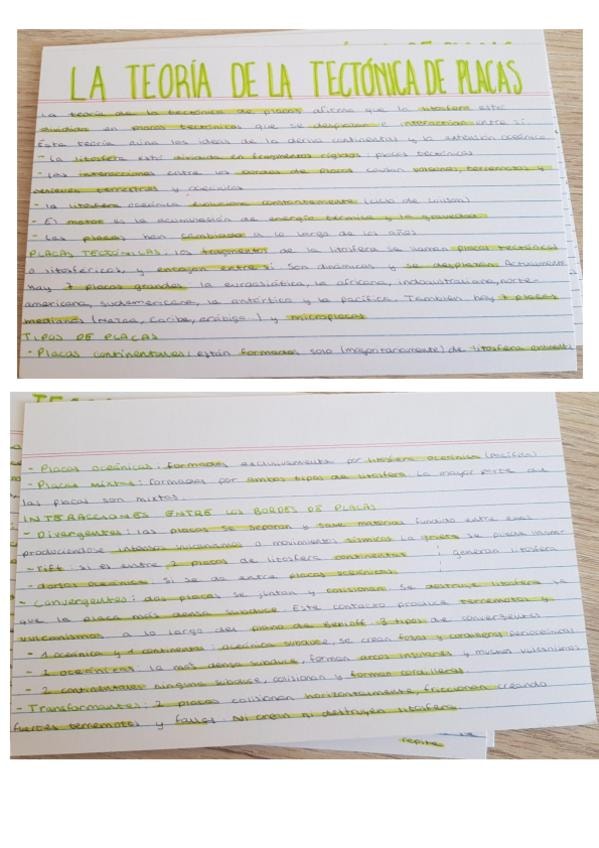 LA TEORÍA DE LA TECTÓNICA DE PLACAS
La teoría de la tectónica de placas afirma que la litosfera está
dividida en placas tectónicas que se desplazan e interactúan entre sí.
Esta teoría reúne las ideas de la deriva continental y la extensión oceánica.
- La litosfera está dividida en fragmentos rígidos: placas tectónicas
- Las interacciones entre los bordes de placa causan volcanes, terremotos y
relieves terrestres y oceánicos
- La litosfera oceánica evoluciona constantemente (ciclo de Wilson)
- El motor es la acumulación de energía térmica y la gravedad
- Las placas han cambiado a lo largo de los años
PLACAS TECTÓNICAS: los fragmentos de la litosfera se llaman placas tectónicas
o litosféricas, y encajan entre sí. Son dinámicas y se desplazan. Actualmente
hay 7 placas grandes: la euroasiática, la africana, indoaustraliana, norte-
americana, sudamericana, la antártica y la pacífica. También hay 7 placas
medianas (Nazca, Caribe, arábiga) y microplacas
TIPOS DE PLACAS
- Placas continentales: están formadas solo (mayoritariamente) de litosfera
- Placas oceánicas: formadas exclusivamente por litosfera oceánica (Pacífica)
- Placas mixtas: formadas por ambos tipos de litosfera. La mayor parte de
las placas son mixtas.
INTERACCIONES ENTRE LOS BORDES DE PLACAS
- Divergentes: las placas se separan y sale material fundido entre ellas
produciéndose intenso vulcanismo o movimientos sísmicos. La grieta se puede llamar:
- Rift: si es entre 2 placas de litosfera continental generan litosfera
- dorsal oceánica: si se da entre placas oceánicas
- Convergentes: dos placas se juntan y colisionan. Se destruye litosfera
que la placa más densa subduce. Este contacto produce terremotos y
vulcanismos a lo largo del plano de Benioff. 3 tipos de convergentes
- 1 oceánica y 1 continental: oceánica subduce, se crean fosas y cordilleras perioceánicas
- 2 oceánicas: la más densa subduce, forman arcos insulares y muchos vulcanismos
- 2 continentales: ninguna subduce, colisionan y forman cordilleras.
- Transformantes: 2 placas colisionan horizontalmente, friccionan creando
fuertes terremotos y fallas. Ni crean ni destruyen litosfera.
repite